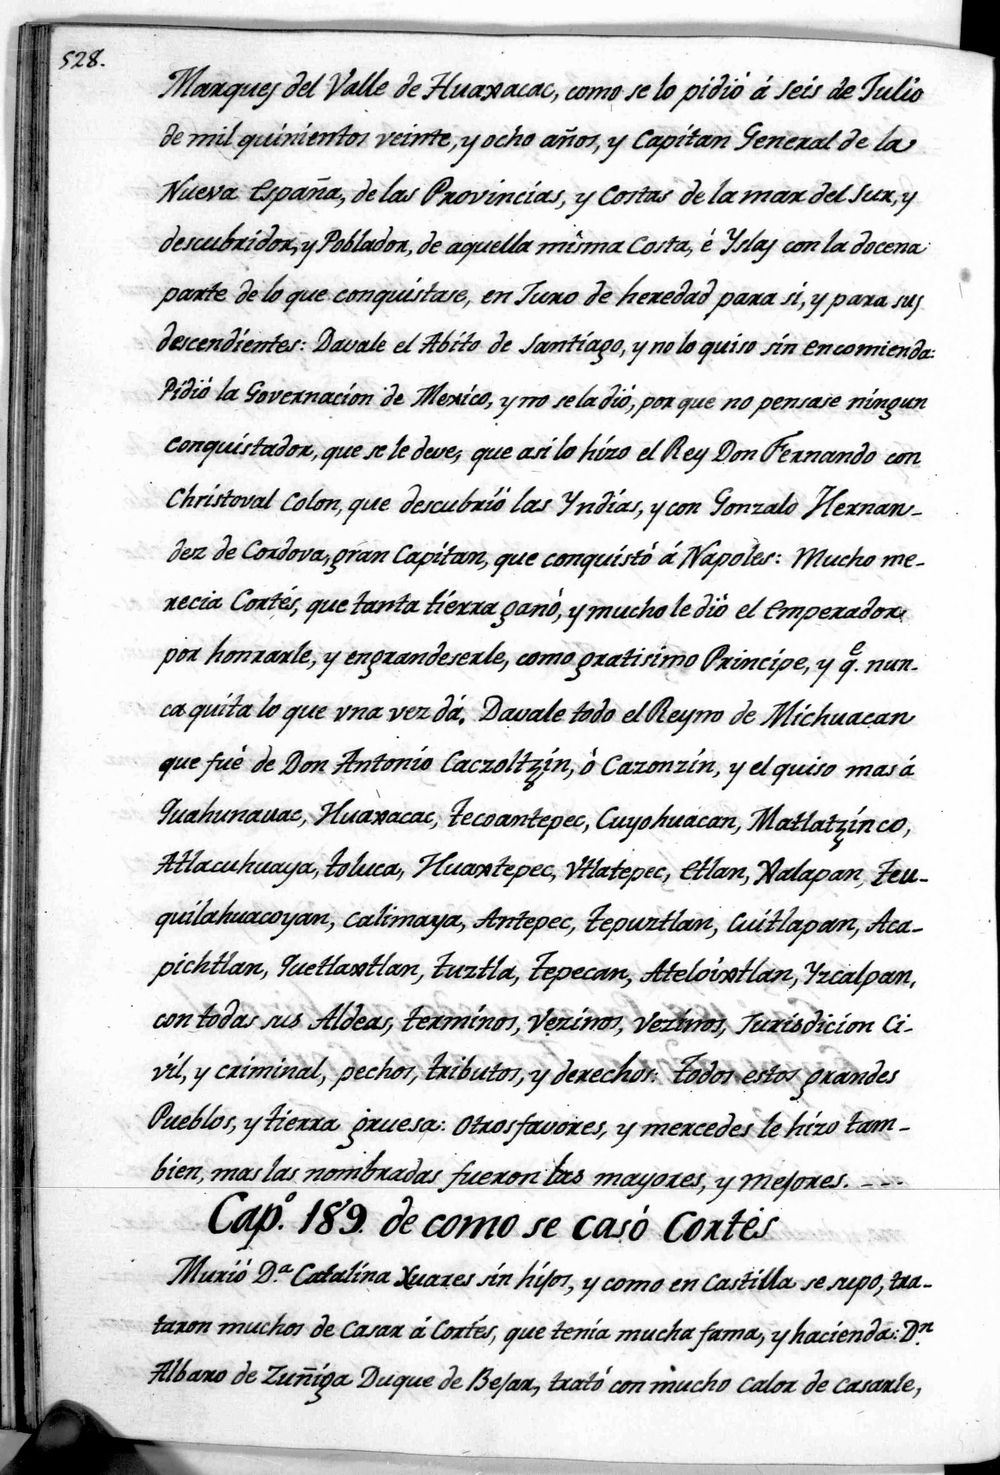 528.
Marques del Valle de Huaxacac, como se lo pidió á seis de Julio
de mil quinientos veinte, y ocho años, y Capitan General de la
Nueva España, de las Provincias, y Costas de la mar del Sur, y
descubridor, y Poblador, de aquella misma Costa, é Yslas con la docena
parte de lo que conquistase, en Juro de heredad para si, y para sus
descendientes: Davale el Abito de Santiago, y no lo quiso sin encomienda:
Pidió la Governacion de Mexico, y no se la dió, por que no pensase ningun
conquistador, que se le deve, que asi lo hizo el Rey Don Fernando con
Christoval Colon, que descubrió las Yndias, y con Gonzalo Hernan-
dez de Cordova, gran Capitan, que conquistó á Napoles: Mucho me-
recia Cortés, que tanta tierra ganó, y mucho le dió el Emperador
por honrarle, y engrandeserle, como gratisimo Principe, y q.e nun-
ca quita lo que vna vez dá. Davale todo el Reyno de Michuacan
que fué de Don Antonio Caczoltzin, ò Cazonzin, y el quiso mas á
Quahunavac, Huaxacac, Tecoantepec, Cuyohuacan, Matlatzinco,
Atlacuhuaya, Toluca, Huaxtepec, Vtlatepec, Etlan, Xalapan, Teu-
quilahuacoyan, Calimaya, Antepec, Tepuztlan, Cuitlapan, Aca-
pichtlan, Quetlaxtlan, Tuztla, Tepecan, Ateloixtlan, Yzcalpan,
con todas sus Aldeas, terminos, Vezinos, Vezinos, Jurisdicion Ci-
vil, y criminal, pechos, tributos, y derechos: Todos estos grandes
Pueblos, y tierra gruesa: Otros favores, y mercedes le hizo tam-
bien, mas las nombradas fueron las mayores, y mejores. - - -
Cap.o 189. de como se casó Cortés
Murió D.a Catalina Xuares sin hijos, y como en Castilla se supo, tra-
taron muchos de Casar á Cortés, que tenia mucha fama, y hacienda: D.n
Albaro de Zuñiga Duque de Bejar, trató con mucho calor de casarle,